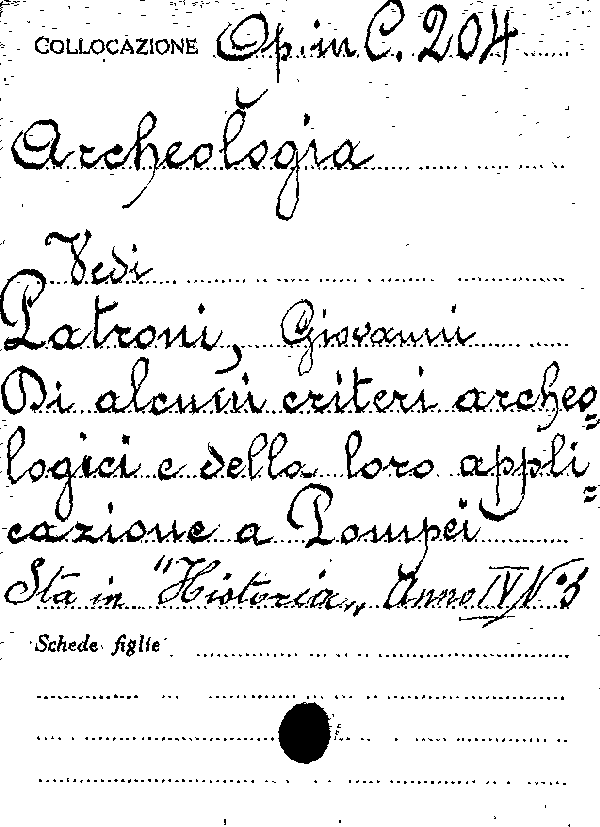 COLLOCAZIONE Op. in C. 204
Archeologia
Vedi
Patroni, Giovanni
Di alcuni criteri archeo=
logici e della loro appli=
cazione a Pompei
Sta in "Historia„ Anno IV N° 3
Schede figlie